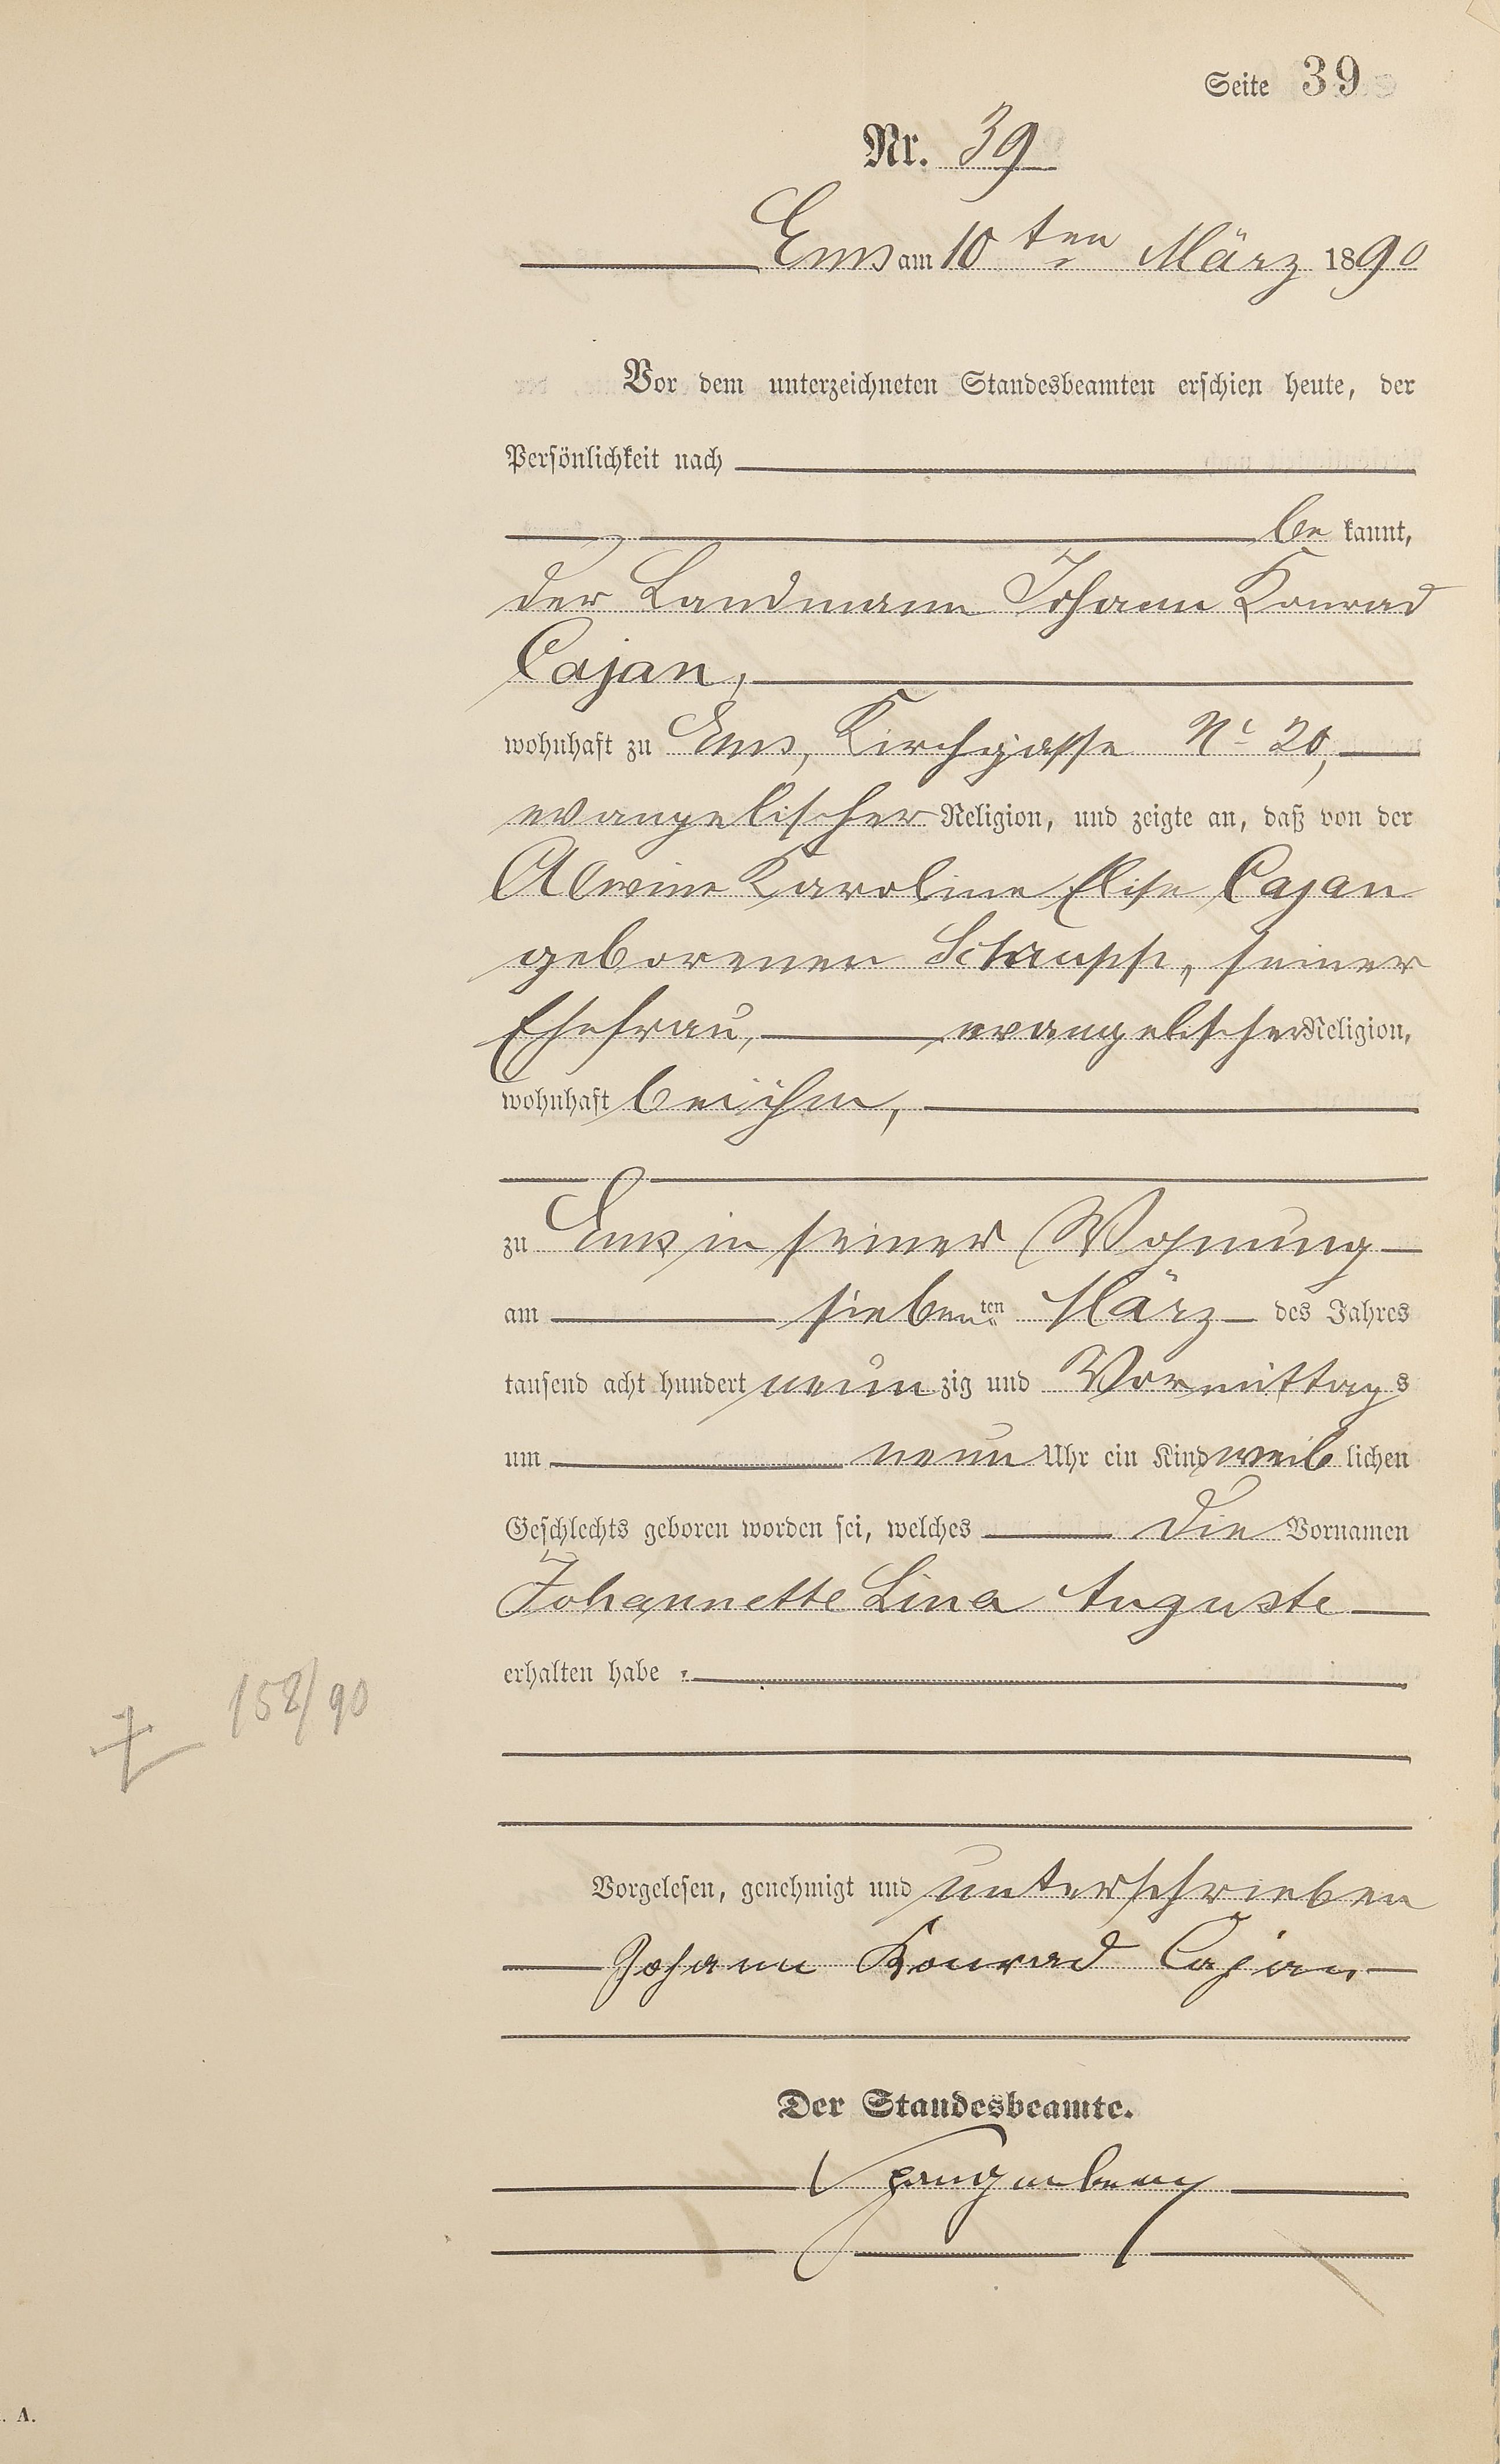 Seite 39
Nr. 39
Ems am 10ten März 1890
Vor dem unterzeichneten Standesbeamten erschien heute, der
Persönlichkeit nach
be kannt,
der Landmann Johann Konrad
Cajan,
wohnhaft zu Ems, Kirchgasse No 20,
evangelischer Religion, und zeigte an, daß von der
Alwine Karoline Elise Cajan
geborenen Schaupp, seiner
Ehefrau, evangelischer Religion,
wohnhaft bei ihm,
zu Ems in seiner Wohnung
am siebenten März des Jahres
tausend acht hundert neunzig und Vormittags
um neun Uhr ein Kind weiblichen
Geschlechts geboren worden sei, welches die Vornamen
Johannette Lina Auguste
erhalten habe.
† 158/90
Vorgelesen, genehmigt und unterschrieben
Johann Konrad Cajan
Der Standesbeamte.
Spangenberg
. A.